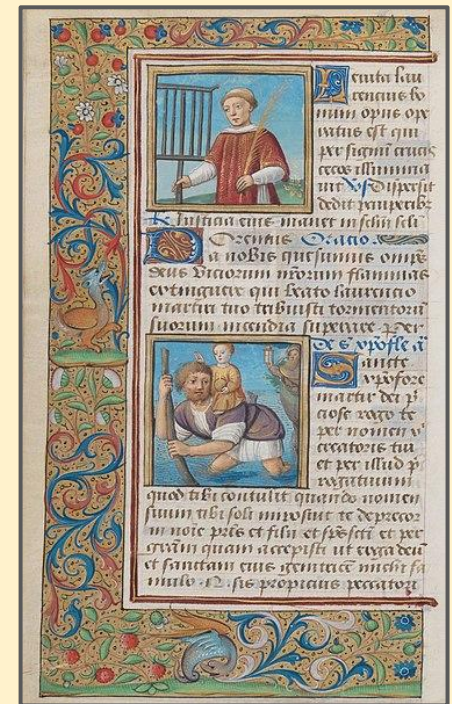 Leuita lau
rencius bo
num opus ope
ratus est qui
per signum crucis
cecos illumina
uit Vs Dispersit
dedit pauperibz
R Iusticia eius manet in sclm scli
Oremus Oracio.
Da nobis quesumus omps
deus viciorum nrorum flammas
extinguere qui beato laurencio
martiri tuo tribuisti tormentorū
suorum incendia superare. Per
De s xpofle añ
Sancte
xpofore
martir dei p
ciose rogo te
per nomen x
creatoris tui
et per illud p
rogatiuum
quod tibi contulit quando nomen
suum tibi soli imposuit te deprecor
in noie pris et filii et sps scti et per
grām quam accepisti ut erga deū
et sanctam eius genitricē michi fa
mulo .N. sis propicius peccatori